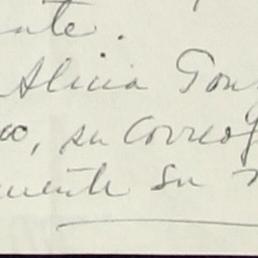 nte.
Alicia Gon
co, su correo
mente su